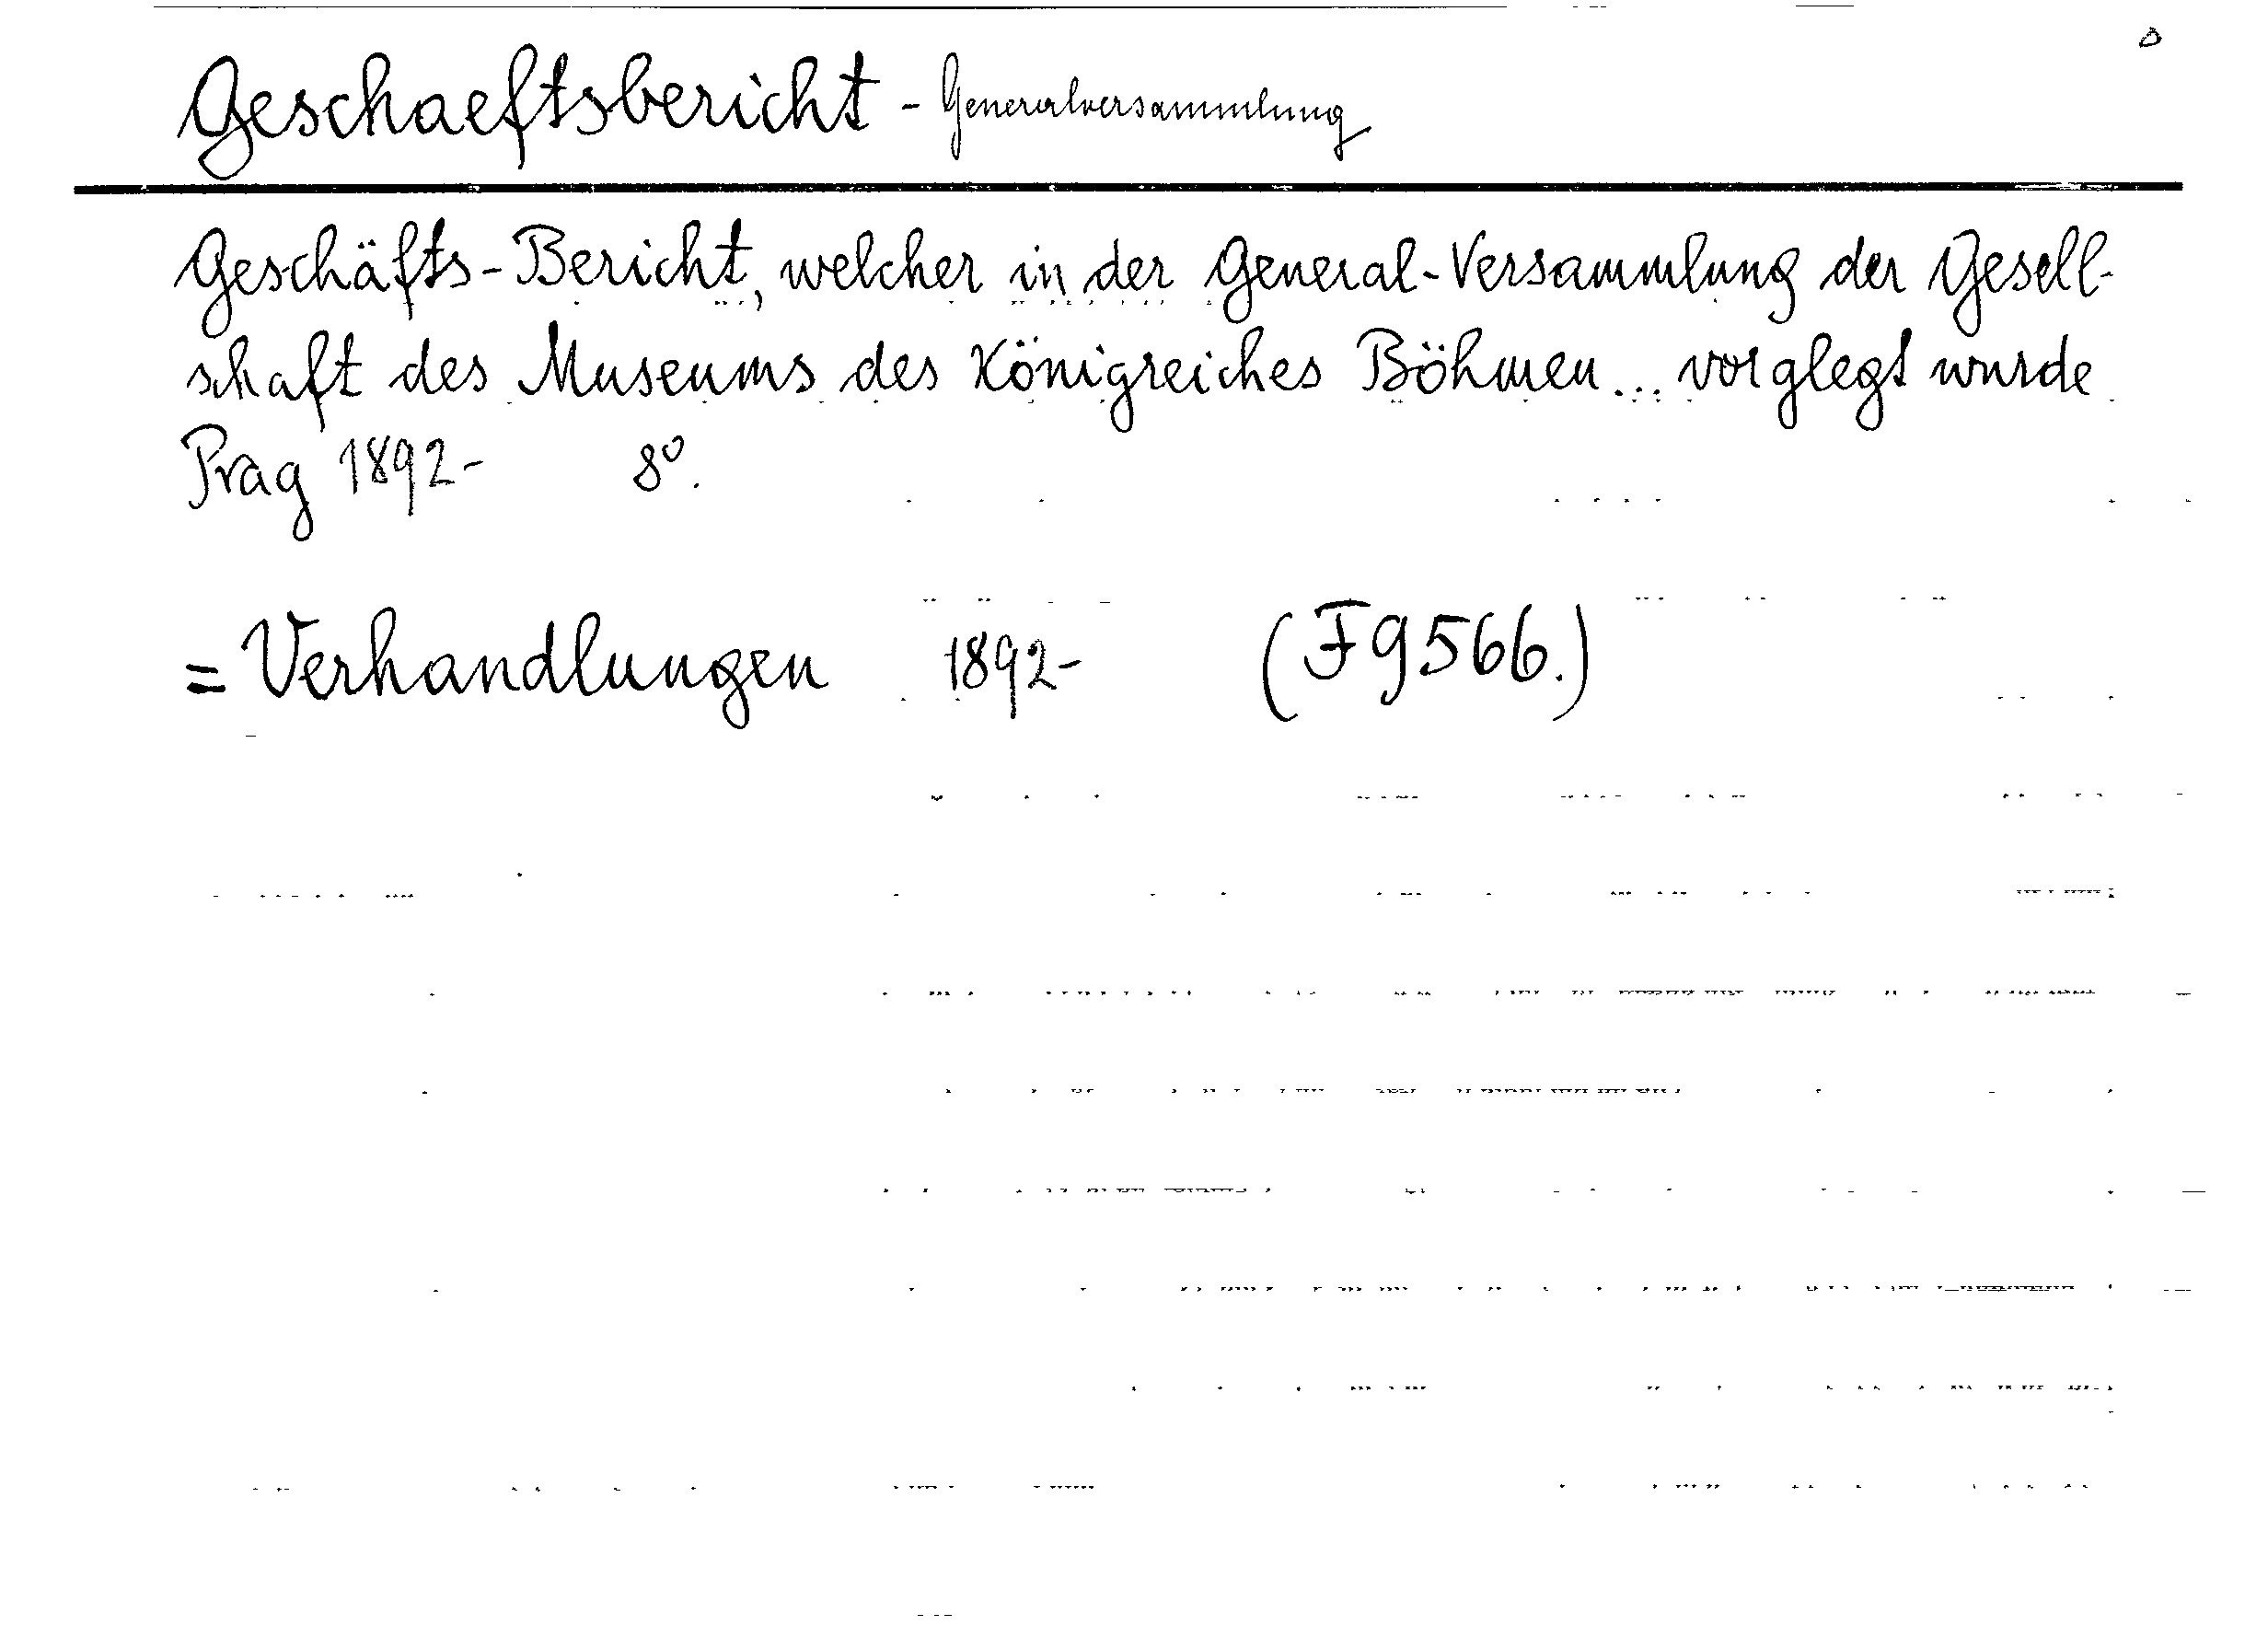 Geschaeftsbericht - Generalversammlung
Geschäfts-Bericht, welcher in der General-Versammlung der Gesell-
schaft des Museums des Königreiches Böhmen... vorglegt wurde
Prag 1892- 8º.
= Verhandlungen 1892- (F9566.)